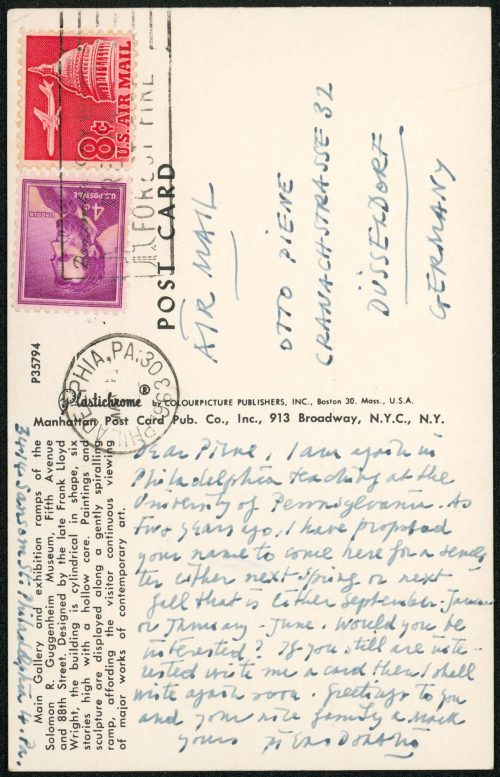 8¢ U.S. AIR MAIL
LINCOLN
4¢
U.S. POSTAGE
FOREST FIRE
PHILADELPHIA, PA. 30
1963
POST CARD
AIR MAIL
OTTO PIENE
CRANACHSTRASSE 32
DÜSSELDORF
GERMANY
P35794
Plastichrome ® by COLOURPICTURE PUBLISHERS, INC., Boston 30, Mass., U.S.A.
Manhattan Post Card Pub. Co., Inc., 913 Broadway, N.Y.C., N.Y.
Main Gallery and exhibition ramps of the
Solomon R. Guggenheim Museum, Fifth Avenue
and 88th Street. Designed by the late Frank Lloyd
Wright, the building is cylindrical in shape, six
stories high with a hollow core. Paintings and
sculpture are displayed along a gently spiralling
ramp, affording the visitor continuous viewing
of major works of contemporary art.
Sansom St. Philadelphia 4. Pa.
Dear Piene, I am again in
Philadelphia teaching at the
University of Pennsylvania. As
two years ago, I have proposed
your name to come here for a semes-
ter either next Spring or next
fall that is either September-
or January - June. Would you be
interested? If you still are inte-
rested write me a card then I shall
write again soon. Greetings to you
and your nice family & Mack
yours Piero Dorazio